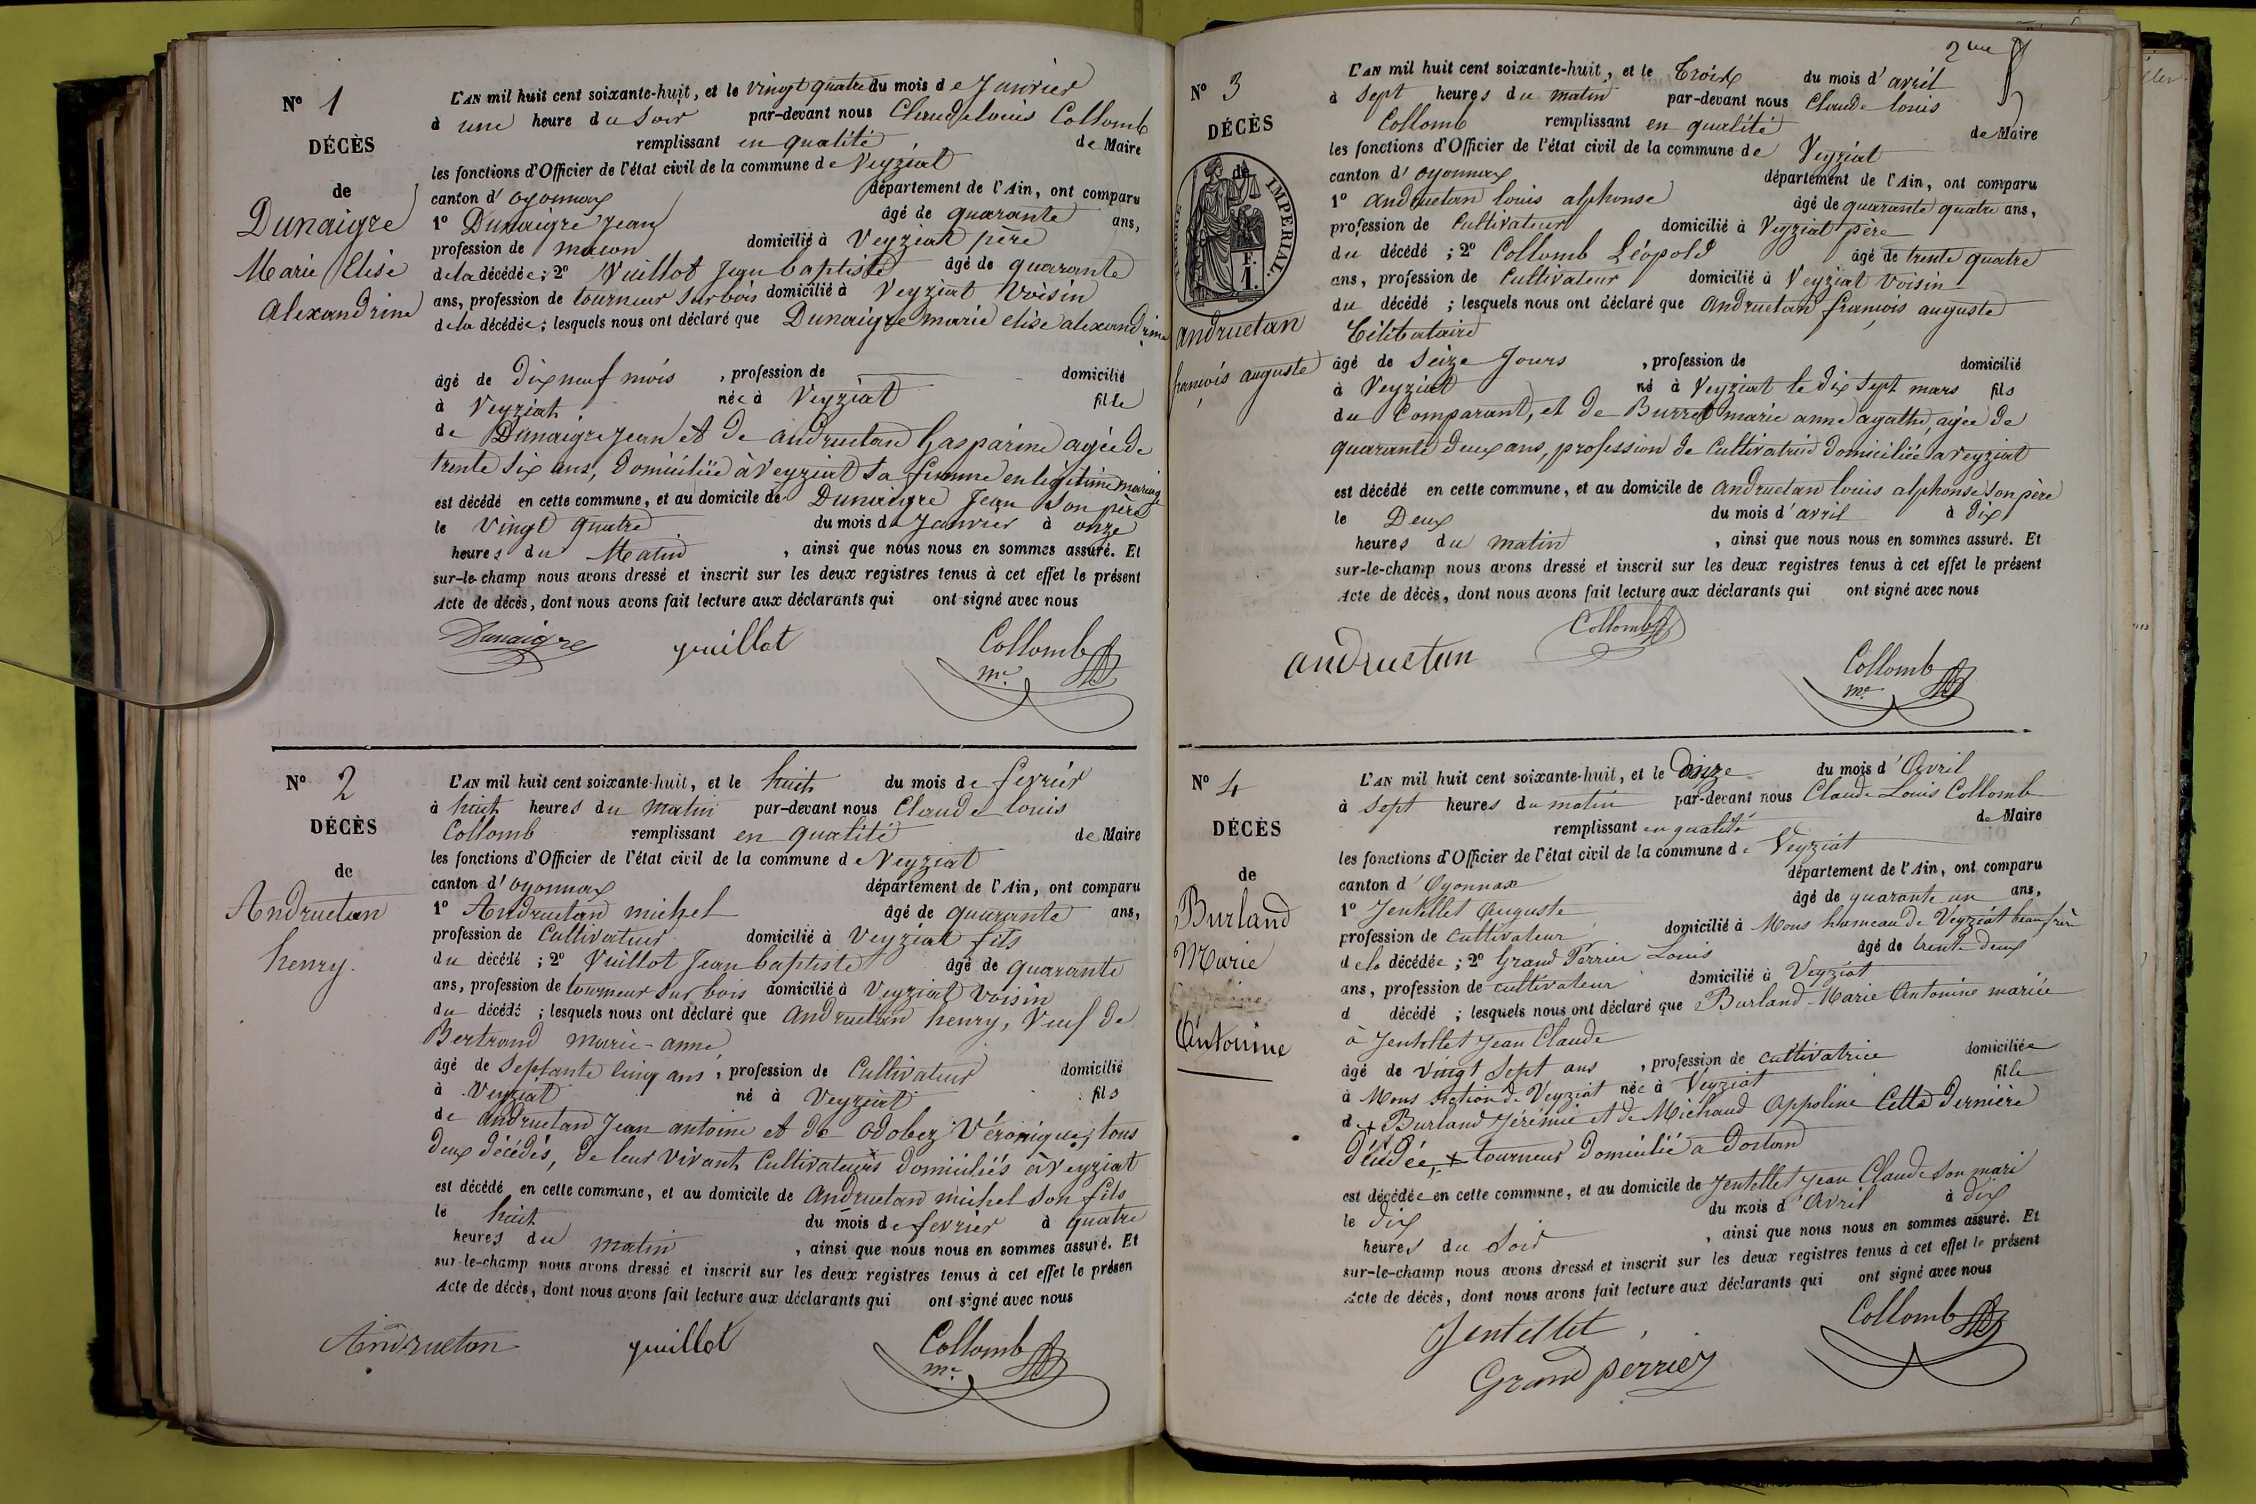 N° 1
DÉCÈS
de
Dunaigre
Marie Elise
Alexandrine
L'AN mil huit cent soixante-huit, et le vingt quatre du mois de Janvier
à une heure du Soir par-devant nous Claude louis Collomb
remplissant en qualité de Maire
les fonctions d'Officier de l'état civil de la commune de Veyziat
canton d'oyonnax département de l'Ain, ont comparu
1° Dunaigre Jean âgé de quarante ans,
profession de macon domicilié à Veyziat père
de la décédée; 2° Vuillot Jean baptiste âgé de quarante
ans, profession de tourneur sur bois domicilié à Veyziat Voisin
de la décédée; lesquels nous ont déclaré que Dunaigre marie elise alexandrine
âgé de dix neuf mois , profession de domicilié
à Veyziat née à Veyziat fille
de Dunaigre Jean et de andruetan Gasparine agée de
trente six ans, domiciliée à Veyziat sa femme en légitime mariage
est décédé en cette commune, et au domicile de Dunaigre Jean son père
le vingt quatre du mois de Janvier à onze
heures du Matin , ainsi que nous nous en sommes assuré. Et
sur-le-champ nous avons dressé et inscrit sur les deux registres tenus à cet effet le présent
Acte de décès, dont nous avons fait lecture aux déclarants qui ont signé avec nous
Dunaigre vuillot Collomb
me
N° 2
DÉCÈS
de
Andruetan
henry.
L'AN mil huit cent soixante-huit, et le huit du mois de fevrier
à huit heures du matin par-devant nous Claude louis
Collomb remplissant en qualité de Maire
les fonctions d'Officier de l'état civil de la commune de Veyziat
canton d'oyonnax département de l'Ain, ont comparu
1° Andruetan michel âgé de quarante ans,
profession de Cultivateur domicilié à Veyziat fils
du décédé; 2° Vuillot Jean baptiste âgé de quarante
ans, profession de tourneur sur bois domicilié à Veyziat voisin
du décédé; lesquels nous ont déclaré que andruetan henry, Veuf de
Bertrand marie-anne,
âgé de septante cinq ans, profession de Cultivateur domicilié
à Veyziat né à Veyziat fils
de andruetan Jean antoine et de odobez Véronique, tous
deux décédés, de leur vivant Cultivateurs domiciliés à Veyziat
est décédé en cette commune, et au domicile de andruetan michel son fils
le huit du mois de fevrier à quatre
heures du matin , ainsi que nous nous en sommes assuré. Et
sur-le-champ nous avons dressé et inscrit sur les deux registres tenus à cet effet le présen
Acte de décès, dont nous avons fait lecture aux déclarants qui ont signé avec nous
Andruetan vuillot Collomb
me
2me
N° 3
DÉCÈS
de
IMPERIAL.
F.
1.
andruetan
francois auguste
L'AN mil huit cent soixante-huit, et le Troix du mois d'avril
à sept heures du matin par-devant nous Claude louis
Collomb remplissant en qualité de Maire
les fonctions d'Officier de l'état civil de la commune de Veyziat
canton d'oyonnax département de l'Ain, ont comparu
1° andruetan louis alphonse âgé de quarante quatre ans,
profession de Cultivateur domicilié à Veyziat père
du décédé; 2° Collomb Léopold âgé de trente quatre
ans, profession de Cultivateur domicilié à Veyziat voisin
du décédé; lesquels nous ont déclaré que andruetan françois auguste
Célibataire
âgé de seize Jours , profession de domicilié
à Veyziat né à Veyziat le dix sept mars fils
du Comparant, et de Burret marie anne agathe, agée de
quarante deux ans, profession de Cultivatrice domiciliée a veyziat
est décédé en cette commune, et au domicile de andruetan louis alphonse son père
le Deux du mois d'avril à dix
heures du matin , ainsi que nous nous en sommes assuré. Et
sur-le-champ nous avons dressé et inscrit sur les deux registres tenus à cet effet le présent
Acte de décès, dont nous avons fait lecture aux déclarants qui ont signé avec nous
andructan Collomb Collomb
me
N° 4
DÉCÈS
de
Burland
Marie
Antonine
L'AN mil huit cent soixante-huit, et le onze du mois d'Avril
à sept heures du matin par-devant nous Claude Louis Collomb
remplissant en qualité de Maire
les fonctions d'Officier de l'état civil de la commune de Veyziat
canton d'Oyonnax département de l'Ain, ont comparu
1° Jentellet Auguste âgé de quarante un ans,
profession de cultivateur domicilié à Mons hameau de Veyziat beau frère
de la décédée; 2° Grand Perrier Louis âgé de trente deux
ans, profession de cultivateur domicilié à Veyziat
d décédé; lesquels nous ont déclaré que Burland Marie Antonine mariée
à Jentellet Jean Claude
âgé de vingt sept ans , profession de cultivatrice domiciliée
à Mons section de Veyziat née à Veyziat fille
de + Burland Jérémie et de Michaud Appoline Cette dernière
décédée, + tourneur domicilié a Dortan
est décédée en cette commune, et au domicile de Jentellet Jean Claude son mari
le dix du mois d'Avril à dix
heures du Soir , ainsi que nous nous en sommes assuré. Et
sur-le-champ nous avons dressé et inscrit sur les deux registres tenus à cet effet le présent
Acte de décès, dont nous avons fait lecture aux déclarants qui ont signé avec nous
Jentellet Collomb
Grand perrier